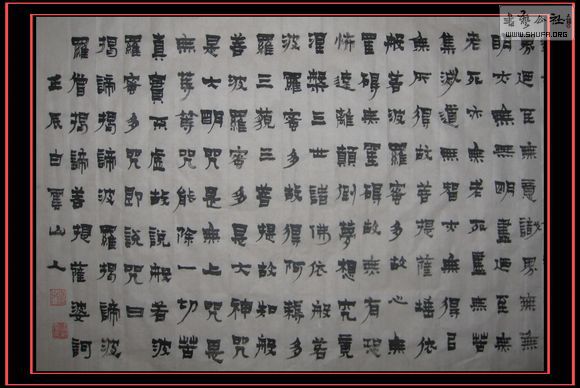 書藝公社
WWW.SHUFA.ORG
界迺至無意識界無無
明亦無無明盡迺至無
老死亦無老死盡無苦
集滅道無智亦無得㠯
無所得故菩提薩埵依
般若波羅蜜多故心無
罣礙無罣礙故無有恐
怖遠離顛倒夢想究竟
涅槃三世諸佛依般若
波羅蜜多故得阿耨多
羅三藐三菩提故知般
若波羅蜜多是大神咒
是大明咒是無上咒是
無等等咒能除一切苦
真實不虛故說般若波
羅蜜多咒即說咒曰
揭諦揭諦波羅揭諦波
羅僧揭諦菩提薩婆訶
壬辰白雲山人